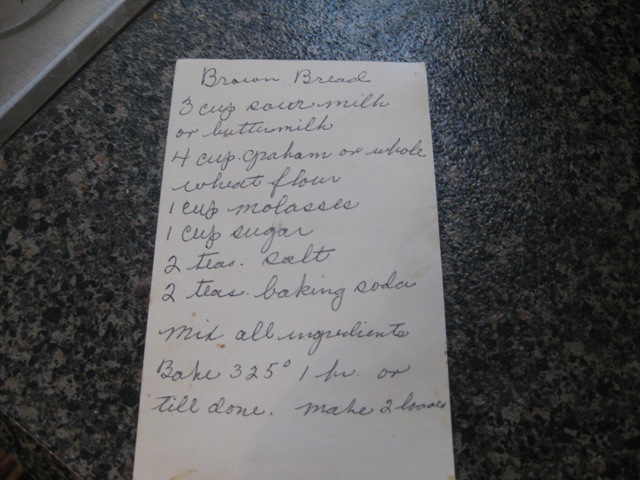 Brown Bread
3 cup sour milk
or buttermilk
4 cup. graham or whole
wheat flour
1 cup molasses
1 cup sugar
2 teas. salt
2 teas. baking soda
Mix all ingredients
Bake 325° 1 hr. or
till done. Make 2 loaves